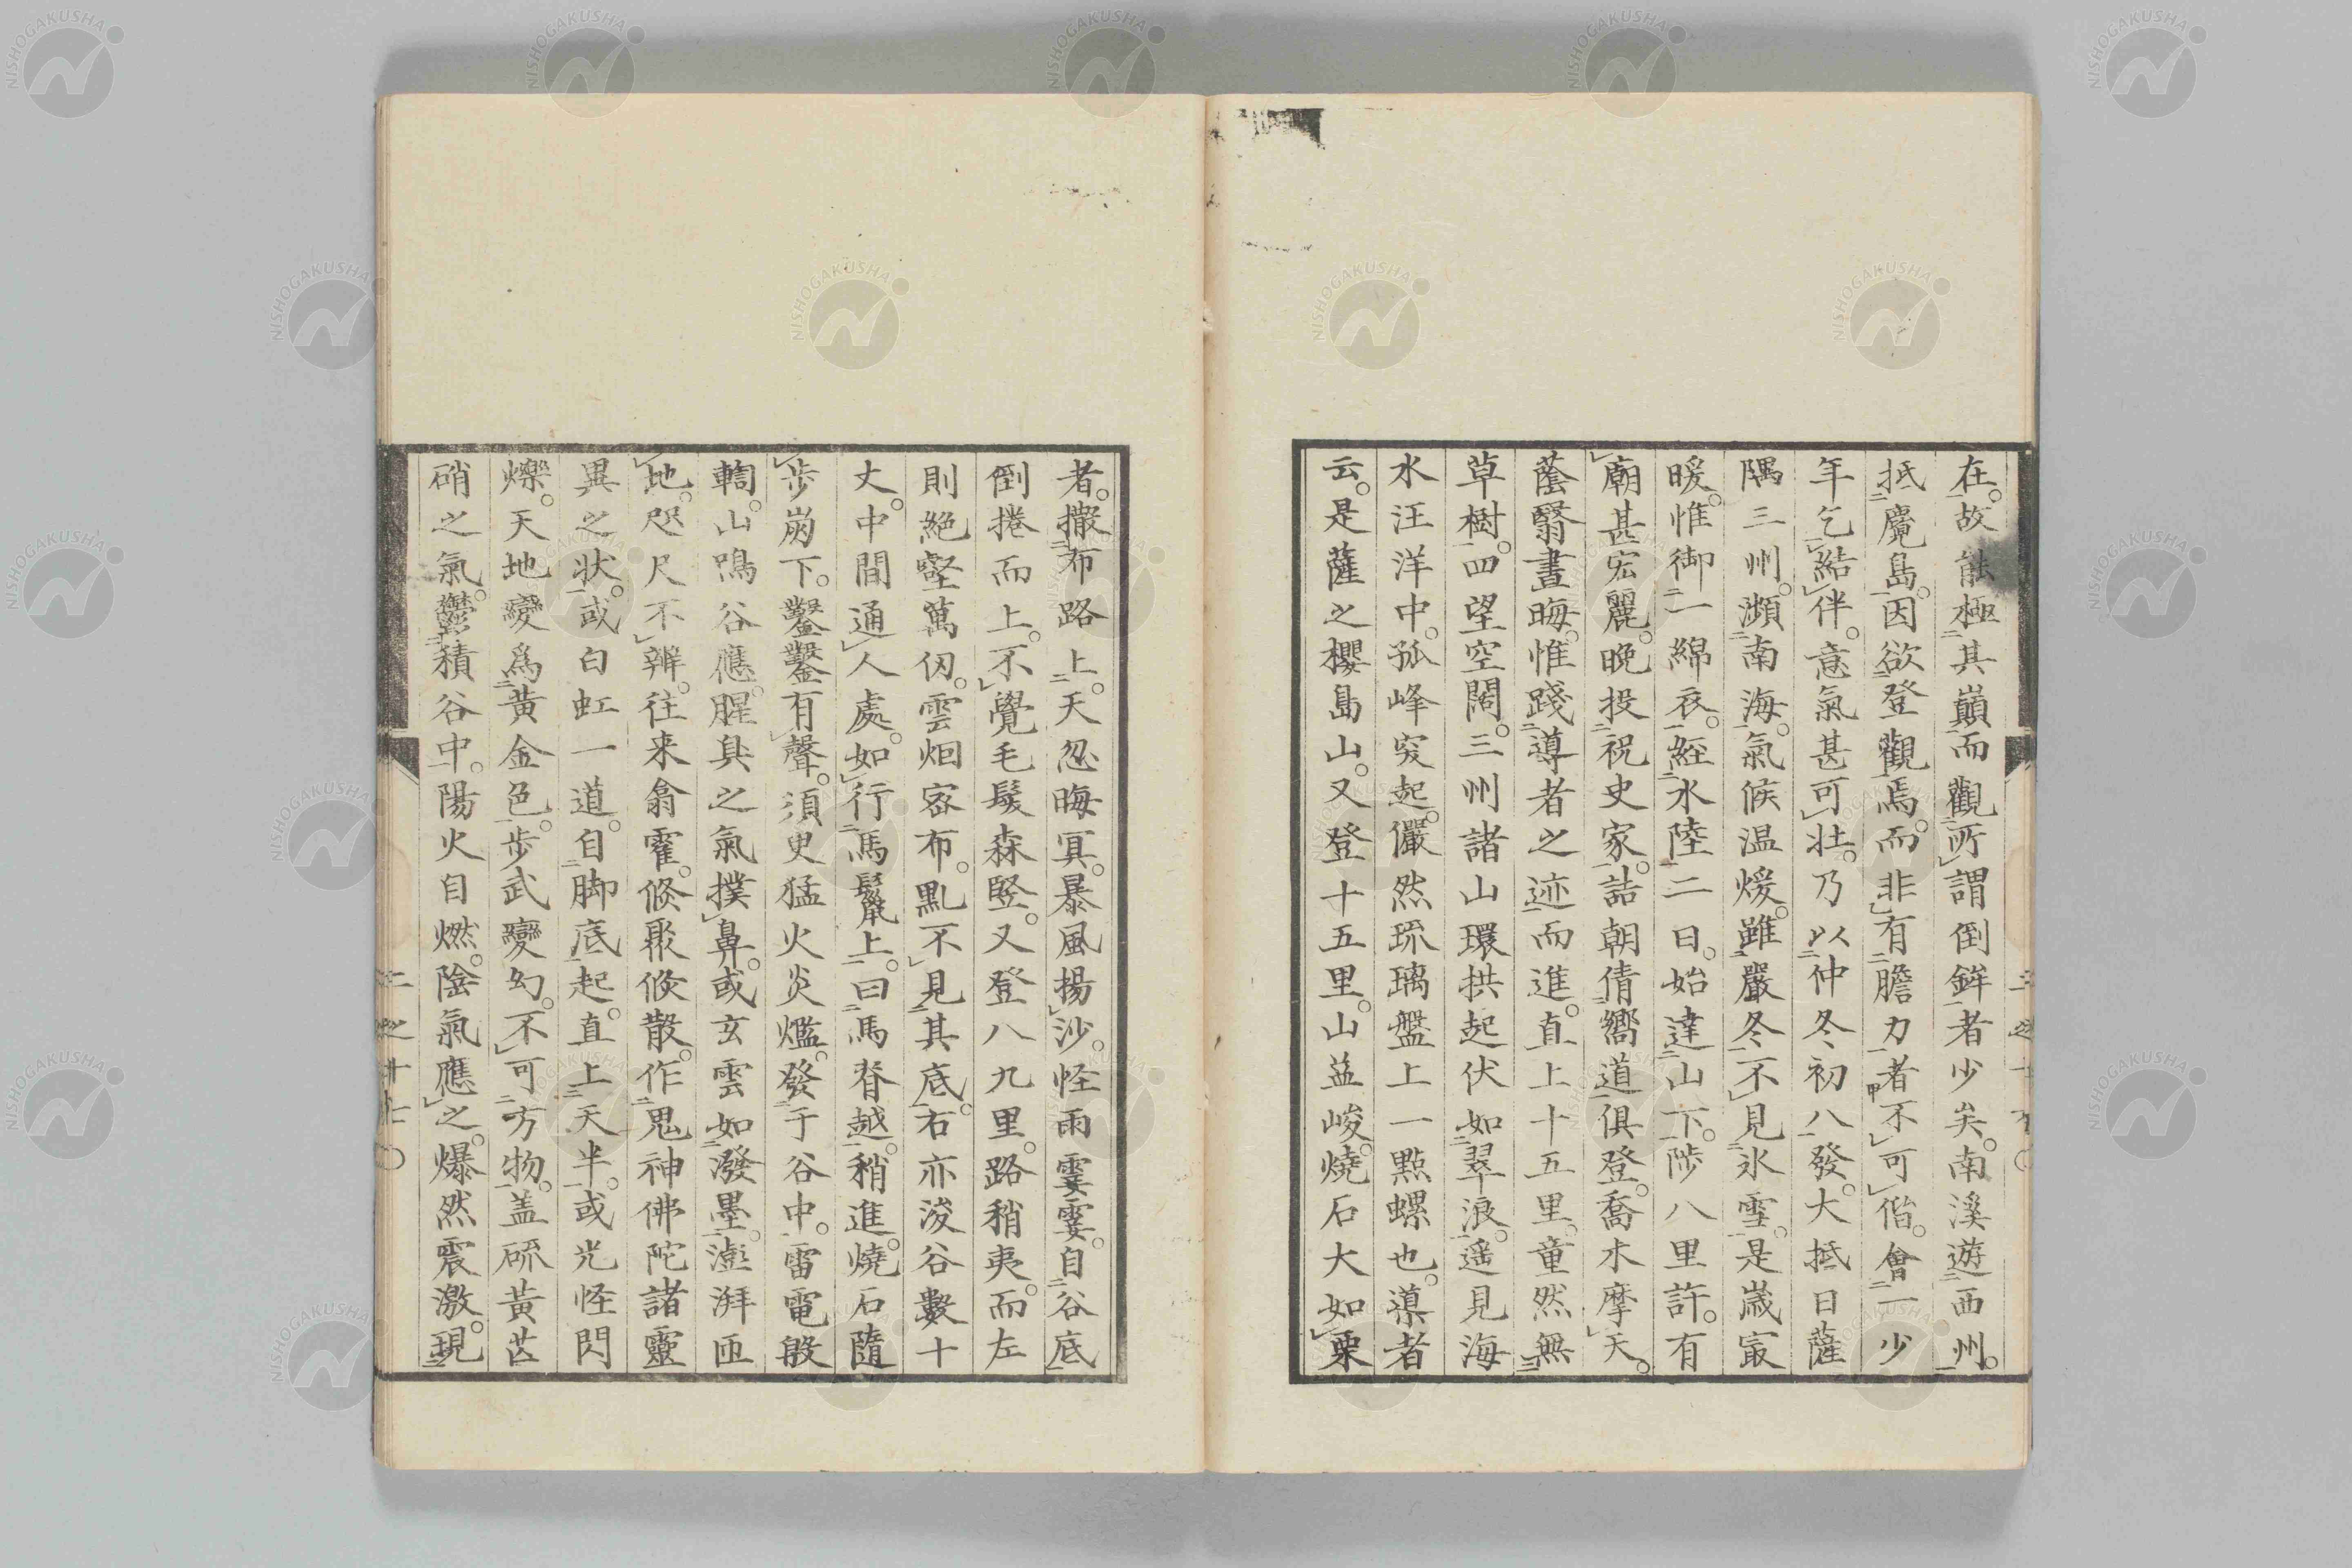 在。故能極其巔而觀所謂倒鉾者少矣。南溪遊西州。
抵麑島。因欲登觀焉。而非有膽力者不可偕。會一少
年乞結伴。意氣甚可壯。乃以仲冬初八發。大抵日薩
隅三州。瀕南海。氣候温煖。雖嚴冬不見氷雪。是歲㝡
暖。惟御一綿衣。經水陸二日。始達山下。陟八里許。有
廟甚宏麗。晚投祝史家。詰朝倩嚮道俱登。喬木摩天。
蔭翳晝晦。惟踐導者之迹而進。直上十五里。童然無
草樹。四望空闊。三州諸山環拱起伏如翠浪。遥見海
水汪洋中。孤峰突起。儼然琉璃盤上一點螺也。導者
云。是薩之櫻島山。又登十五里。山益峻。燒石大如栗
者。撒布路上。天忽晦冥。暴風揚沙。怪雨霎霎。自谷底
倒捲而上。不覺毛髮森竪。又登八九里。路稍夷。而左
則絶壑萬仭。雲烟密布。黑不見其底。右亦浚谷數十
丈。中間通人處。如行馬鬣上。曰馬脊越。稍進。燒石隨
步崩下。鑿鑿有聲。須臾猛火炎爁。發于谷中。雷電殷
輷。山鳴谷應。腥臭之氣撲鼻。或玄雲如潑墨。澎湃匝
地。咫尺不辨。往来翕霍。倐聚倐散。作鬼神佛陀諸靈
異之状。或白虹一道。自脚底起。直上天半。或光怪閃
爍。天地變爲黃金色。步武變幻。不可方物。蓋硫黃芒
硝之氣。鬱積谷中。陽火自燃。陰氣應之。爆然震激。現